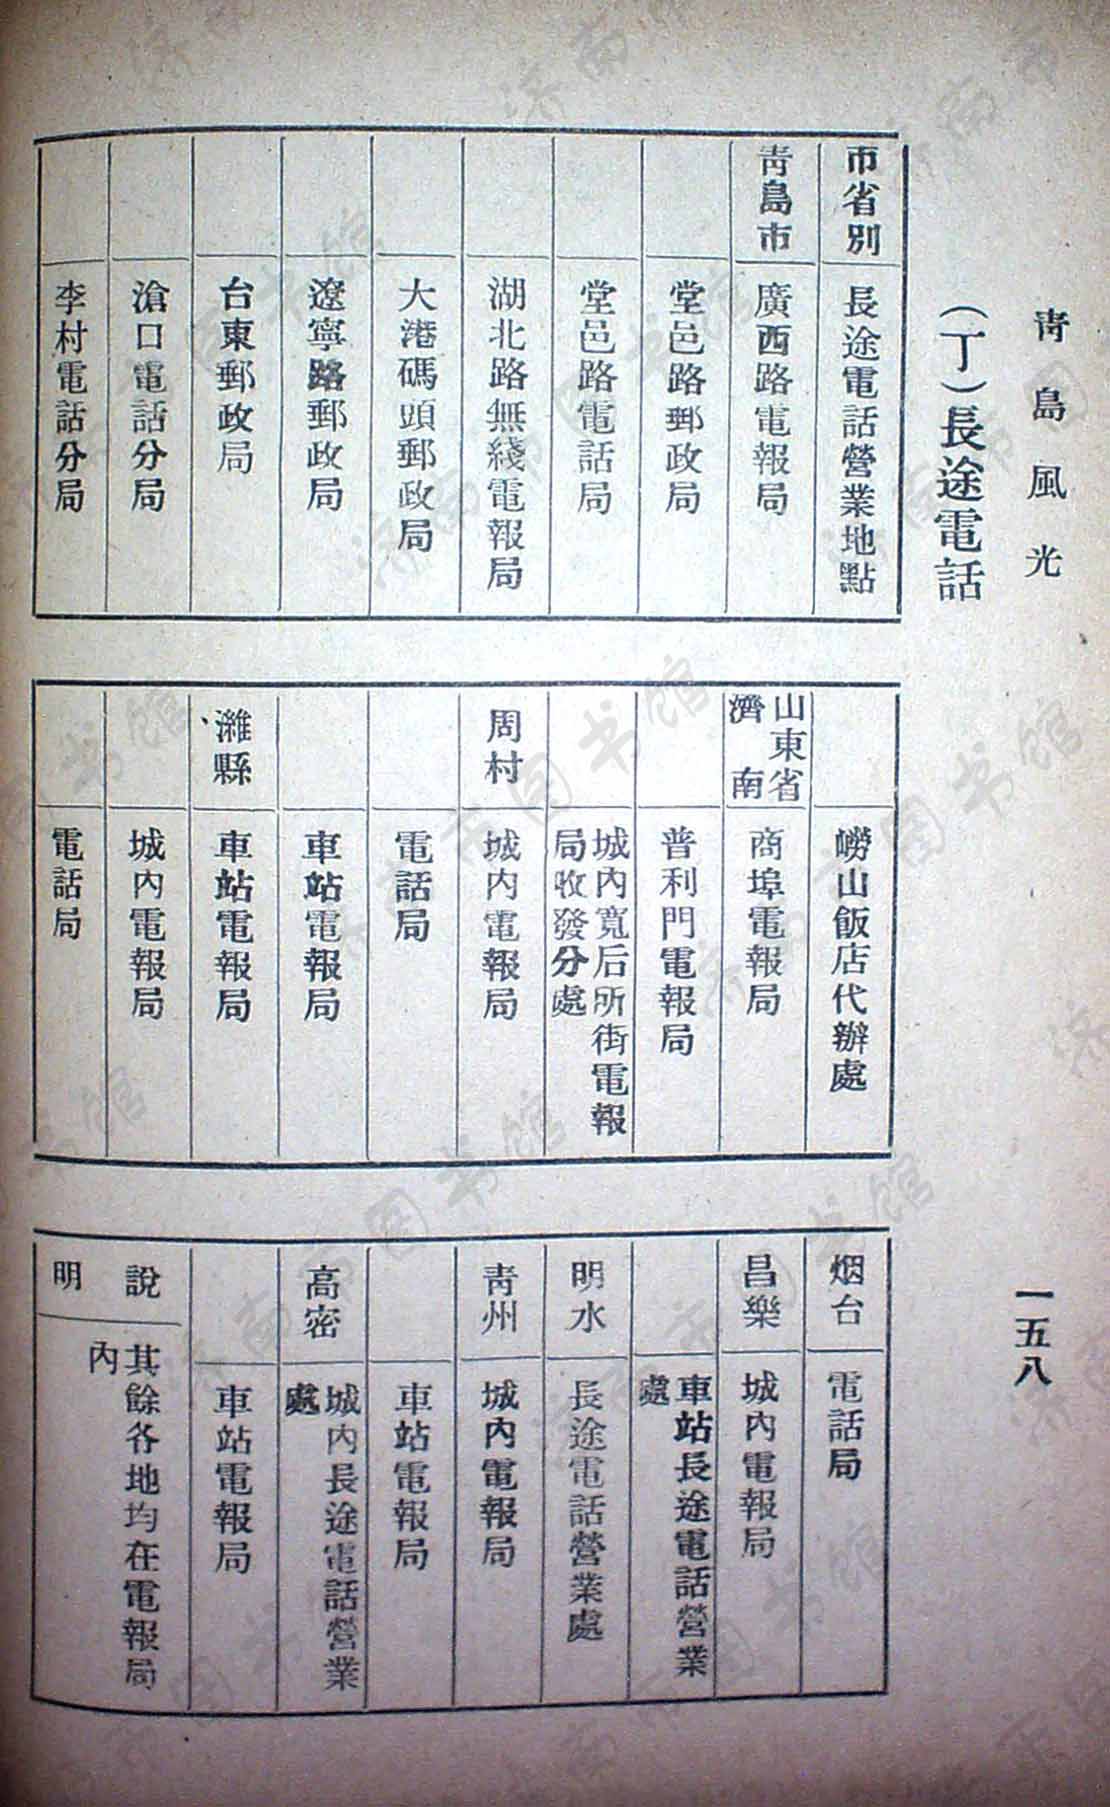 青島風光
一五八
（丁）長途電話
市省別
長途電話營業地點
青島市
廣西路電報局
堂邑路郵政局
堂邑路電話局
湖北路無綫電報局
大港碼頭郵政局
遼寧路郵政局
台東郵政局
滄口電話分局
李村電話分局
嶗山飯店代辦處
山東省
濟南
商埠電報局
普利門電報局
城內寬后所街電報
局收發分處
周村
城內電報局
電話局
車站電報局
濰縣
車站電報局
城內電報局
電話局
烟台
電話局
昌樂
城內電報局
車站長途電話營業
處
明水
長途電話營業處
青州
城內電報局
車站電報局
高密
城內長途電話營業
處
車站電報局
說
明
其餘各地均在電報局
內
济南市图书馆